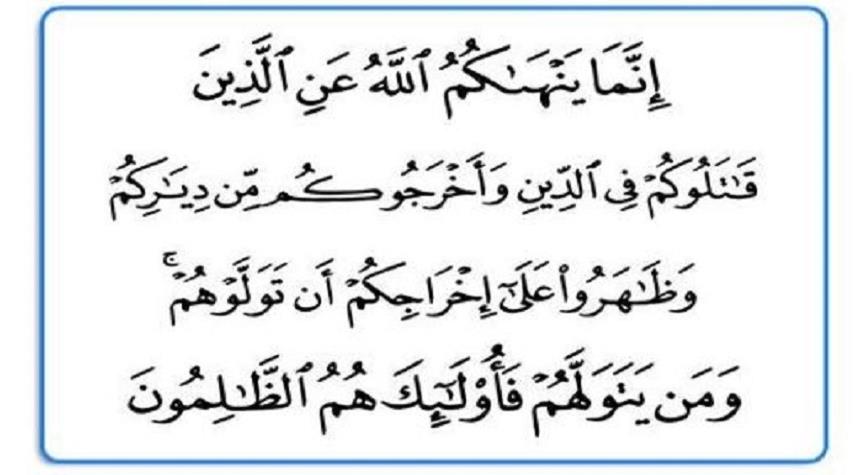 إِنَّمَا يَنْهَىٰكُمُ ٱللَّهُ عَنِ ٱلَّذِينَ
قَٰتَلُوكُمْ فِى ٱلدِّينِ وَأَخْرَجُوكُم مِّن دِيَٰرِكُمْ
وَظَٰهَرُوا۟ عَلَىٰٓ إِخْرَاجِكُمْ أَن تَوَلَّوْهُمْ ۚ
وَمَن يَتَوَلَّهُمْ فَأُو۟لَٰٓئِكَ هُمُ ٱلظَّٰلِمُونَ